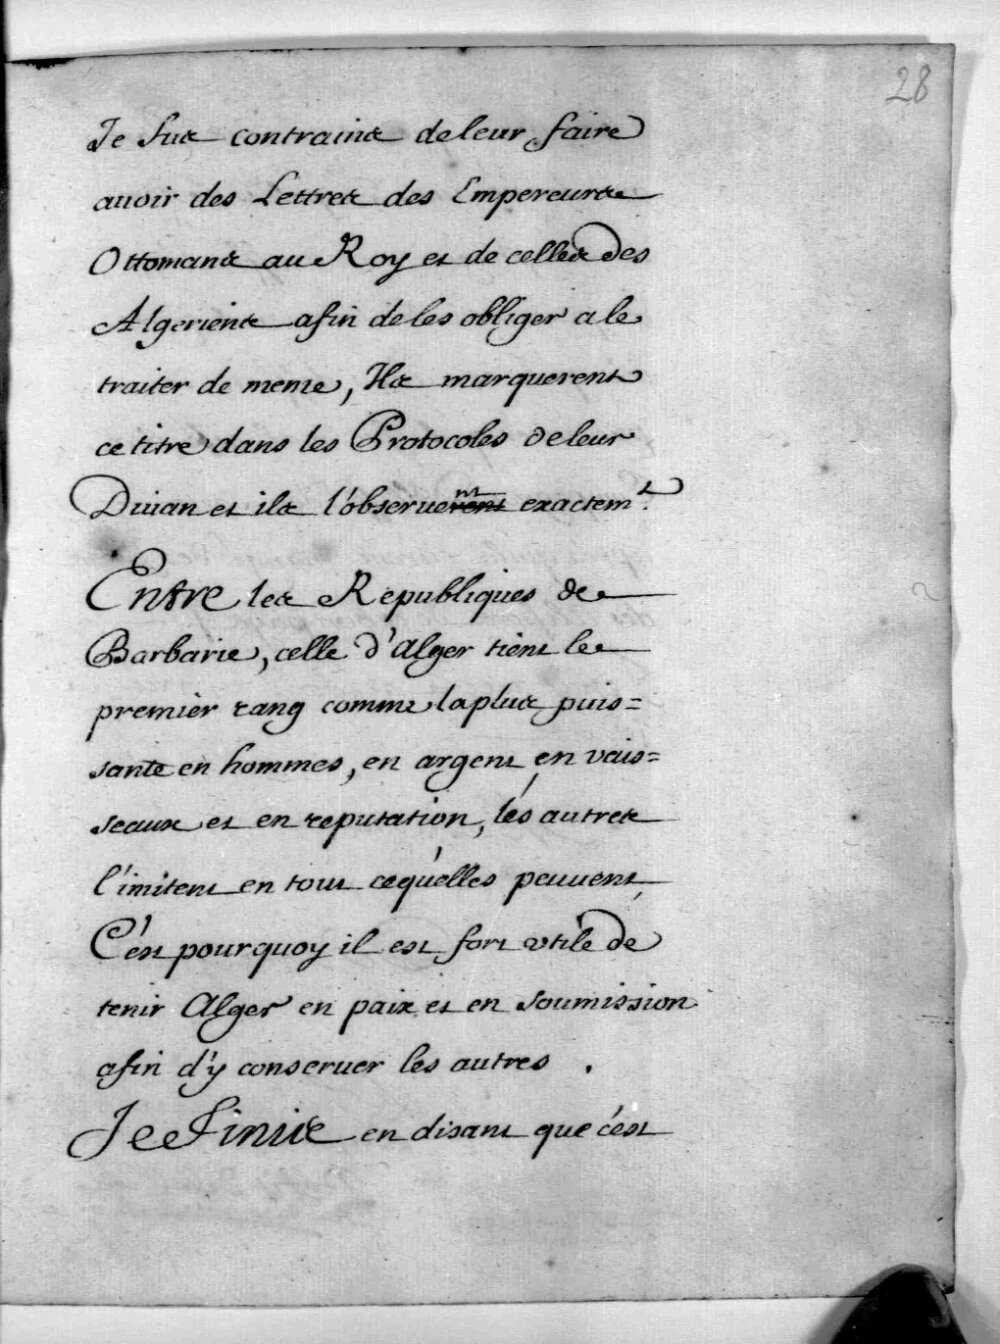 28
Je fus contraint de leur faire
auoir des Lettres des Empereurs
Ottomans au Roy et de celles des
Algeriens afin de les obliger a le
traiter de meme, Ils marquerent
ce titre dans les Protocoles de leur
Diuan et ils l'obseruerent nt exactemt.
Entre les Republiques de
Barbarie, celle d'Alger tient le
premier rang comme la plus puis=
sante en hommes, en argent en vais=
seaux et en reputation, les autres
l'imitent en tout ce qu'elles peuuent,
C'est pourquoy il est fort vtile de
tenir Alger en paix et en soumission
afin d'y conseruer les autres.
Je Finis en disant que c'est